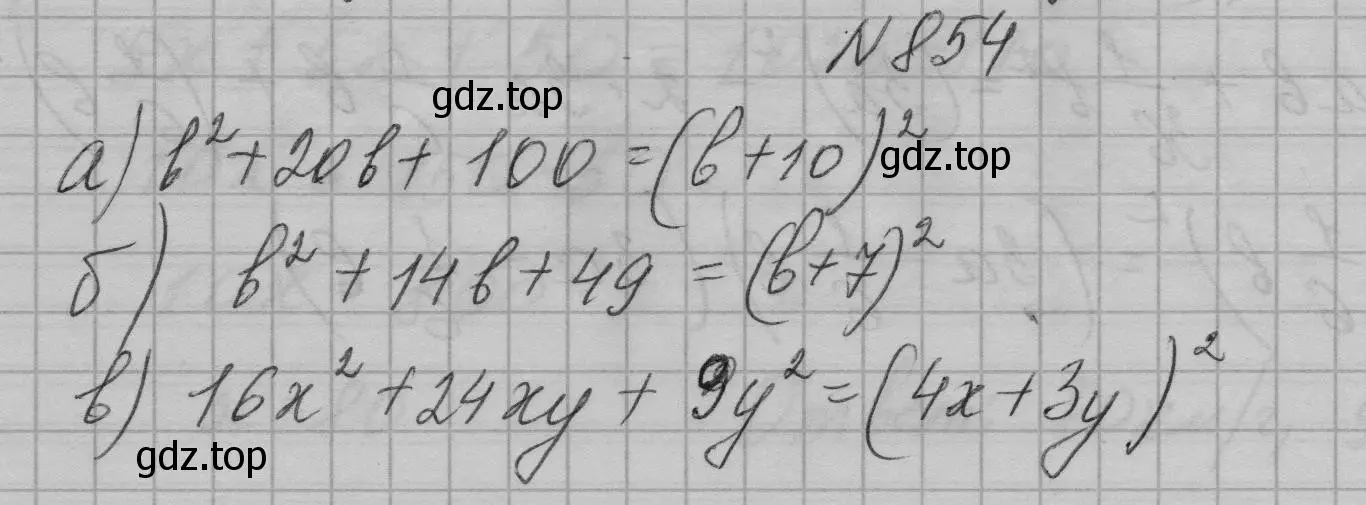 № 854
gdz.top
а) b² + 20b + 100 = (b + 10)²
gdz.top
б) b² + 14b + 49 = (b + 7)²
в) 16x² + 24xy + 9y² = (4x + 3y)²
gdz.top